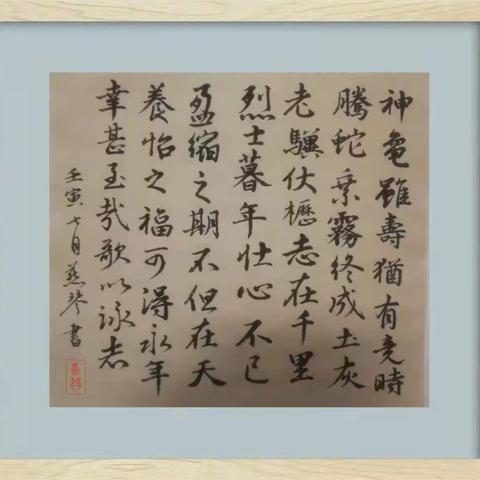 神龜雖壽猶有竟時
騰蛇乘霧終成土灰
老驥伏櫪志在千里
烈士暮年壯心不已
盈縮之期不但在天
養怡之福可得永年
幸甚至哉歌以詠志
壬寅七月燕琴書